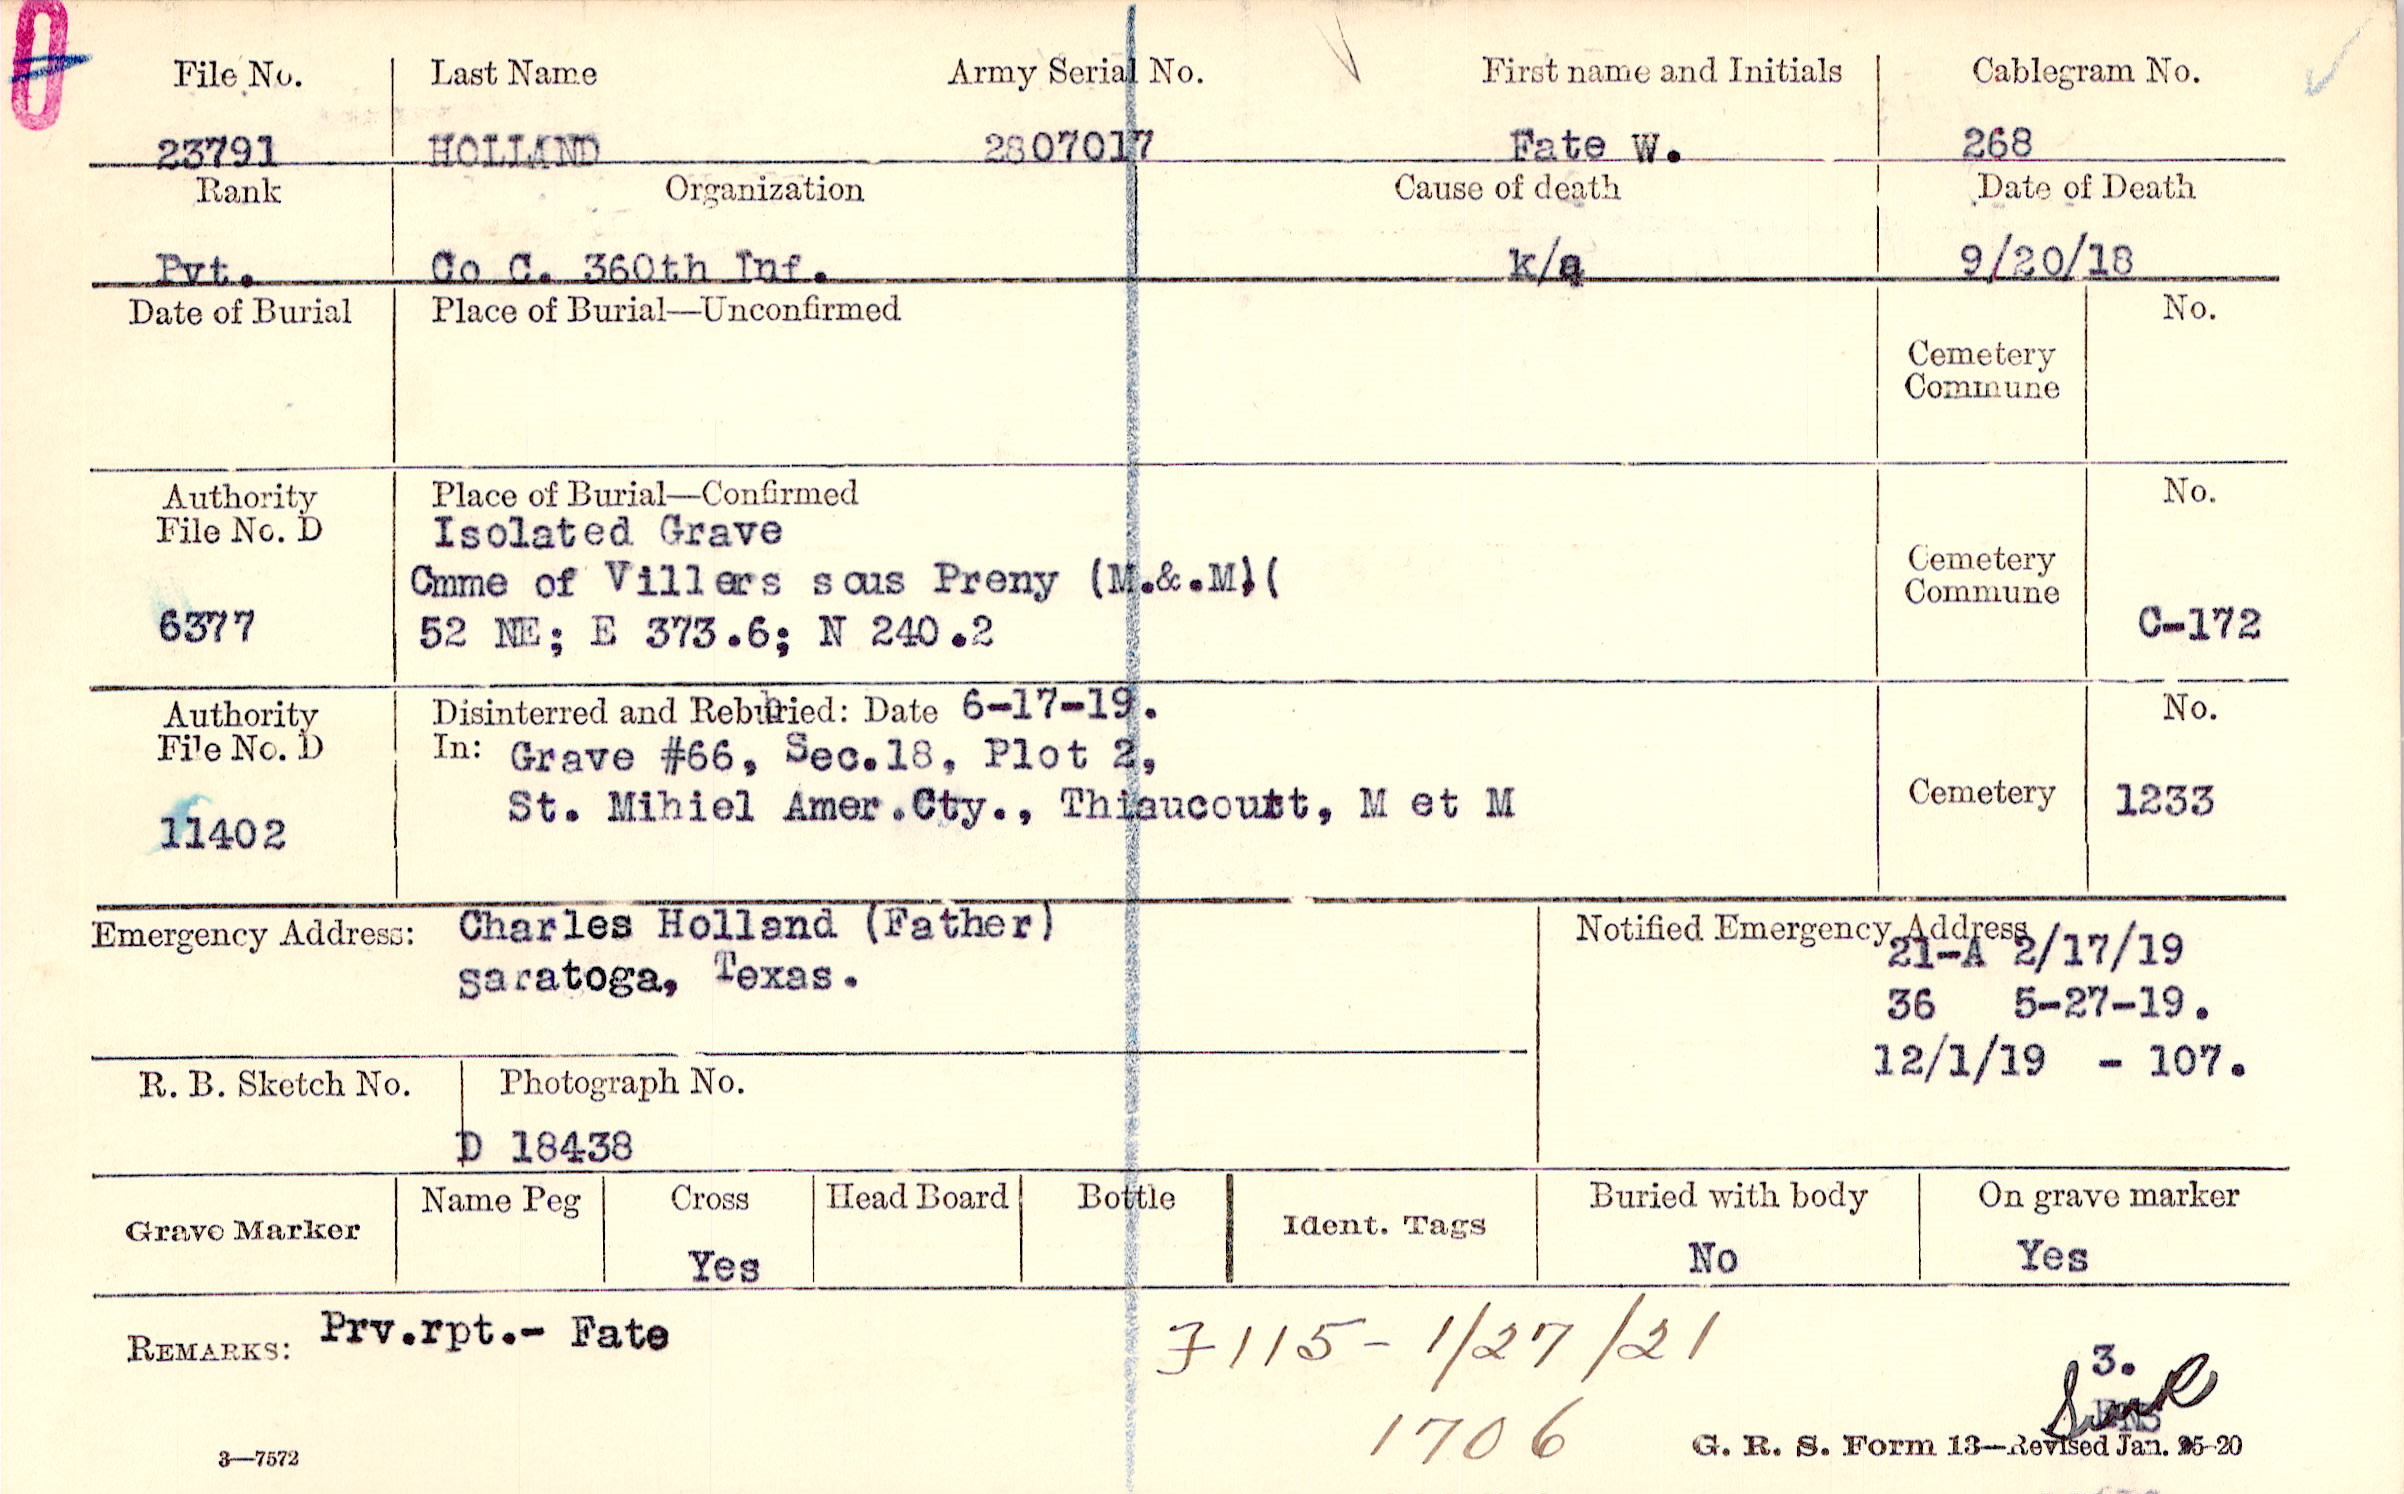 File No. Last Name Army Serial No. First name and Initials Cablegram No.
23791 HOLLAND 2807017 Fate W. 268
Rank Organization Cause of death Date of Death
Pvt. Co C. 360th Inf. k/a 9/20/18
Date of Burial Place of Burial—Unconfirmed No.
Cemetery
Commune
Authority Place of Burial—Confirmed No.
File No. D Isolated Grave
Cemetery
Cmme of Villers sous Preny (M.&.M)(
Commune
6377 52 NE; E 373.6; N 240.2 C-172
Authority Disinterred and Reburied: Date 6-17-19. No.
File No. D In: Grave #66, Sec.18, Plot 2,
11402 St. Mihiel Amer.Cty., Thiaucourt, M et M Cemetery 1233
Emergency Address: Charles Holland (Father) Notified Emergency Address
saratoga, Texas. 21-A 2/17/19
36 5-27-19.
12/1/19 - 107.
R. B. Sketch No. Photograph No.
D 18438
Grave Marker Name Peg Cross Head Board Bottle Ident. Tags Buried with body On grave marker
Yes No Yes
REMARKS: Prv.rpt.- Fate 7115- 1/27/21
3.
1706
3—7572 G. R. S. Form 13—Revised Jan. 25-20